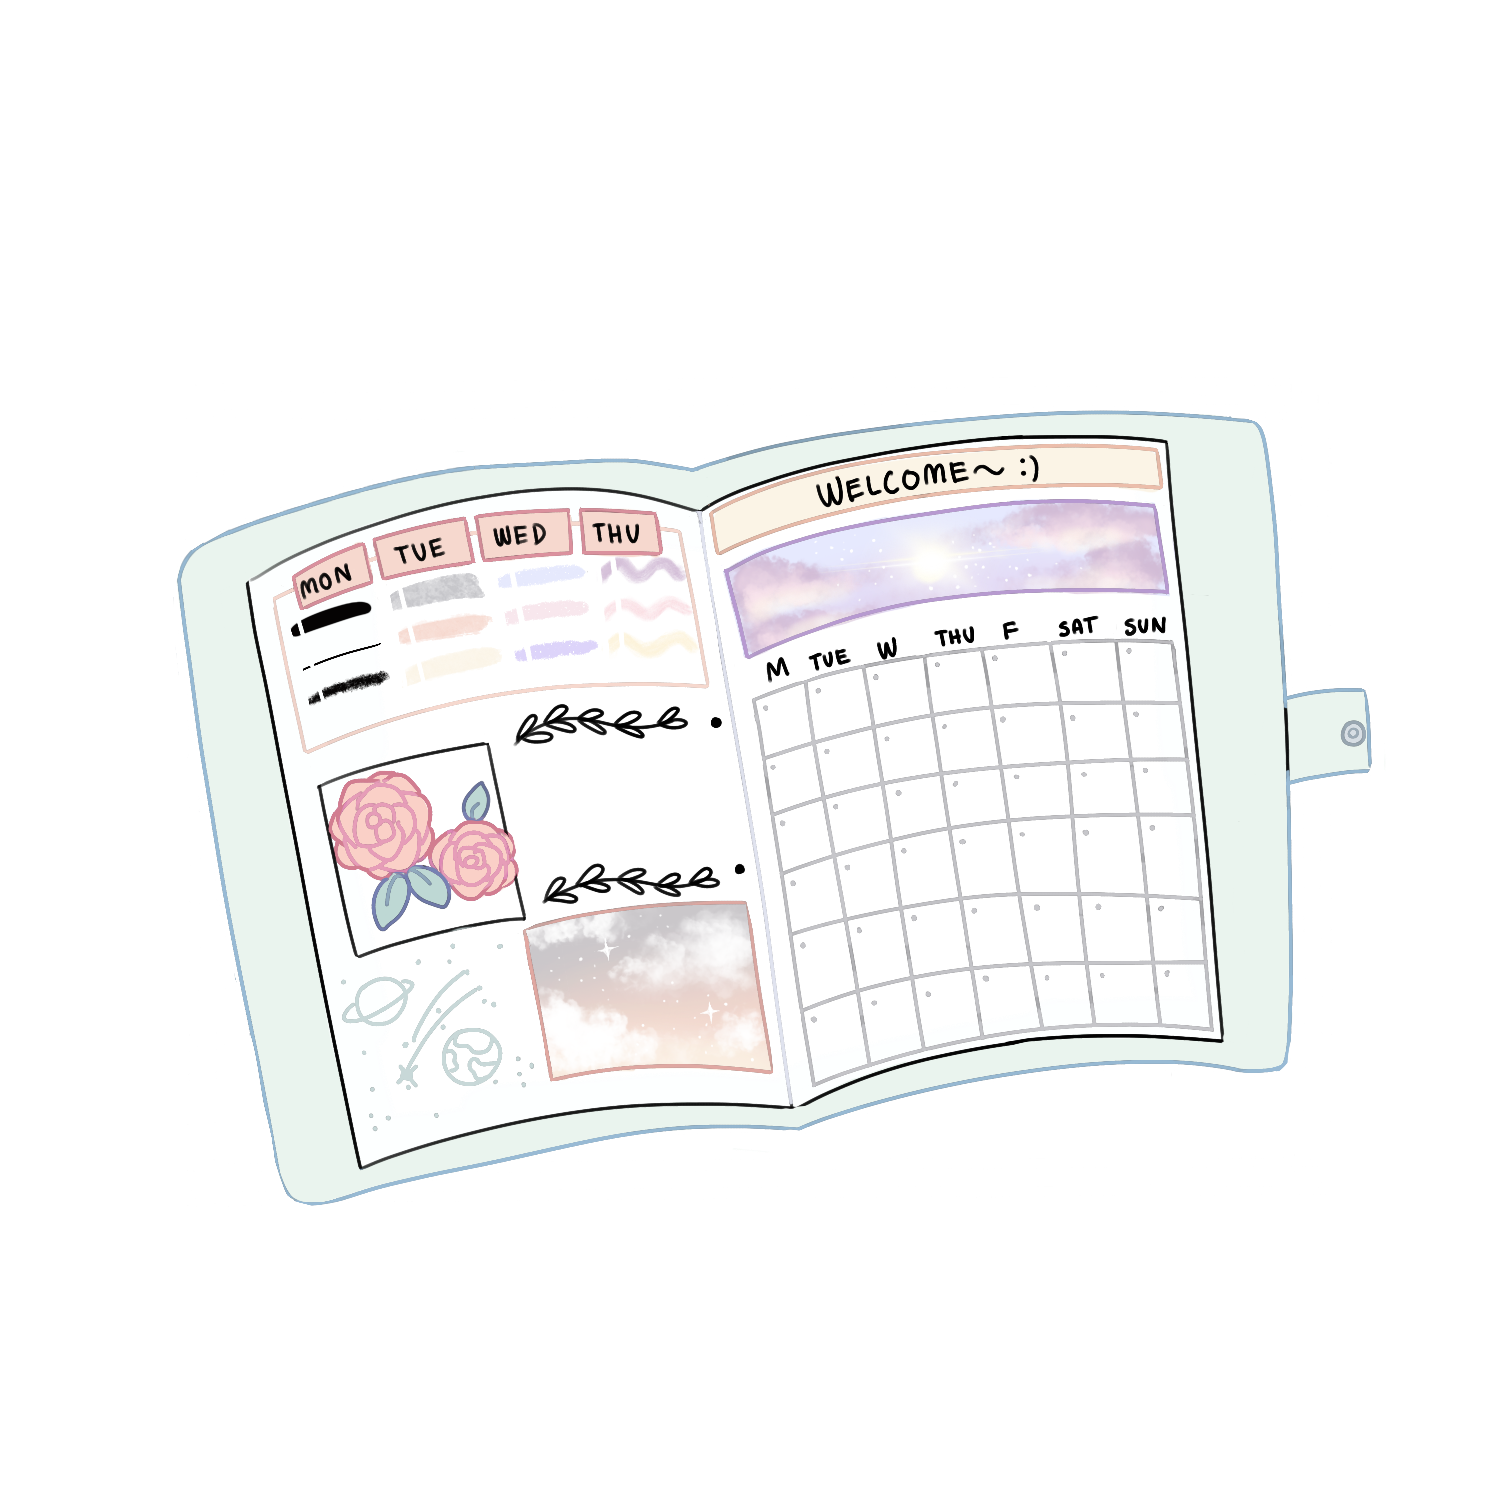 MON TUE WED THU
WELCOME~ :)
M TUE W THU F SAT SUN